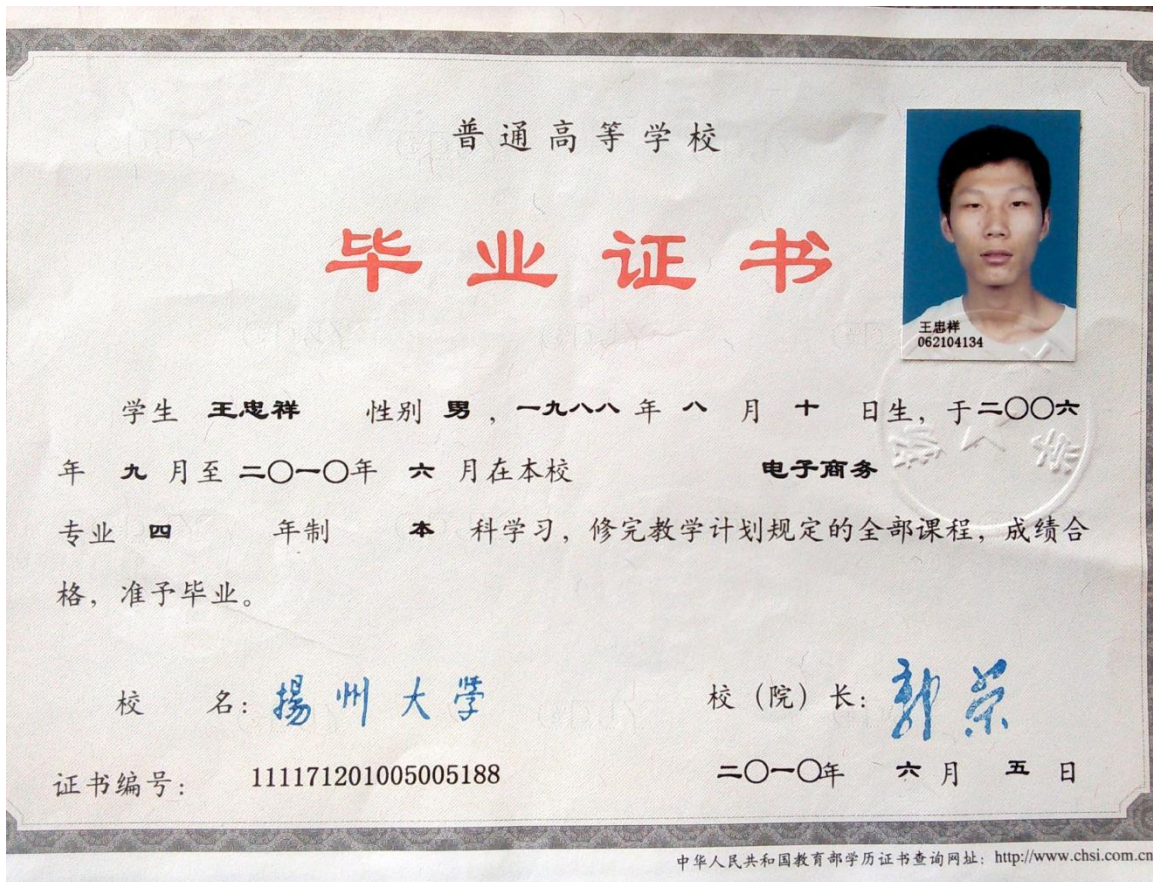 普通高等学校
毕业证书
王忠祥
062104134
学生 王忠祥 性别 男，一九八八年 八 月 十 日生，于二〇〇六
年 九 月至 二〇一〇年 六 月在本校 电子商务
专业 四 年制 本 科学习，修完教学计划规定的全部课程，成绩合
格，准予毕业。
校 名：揚州大学 校（院）长：郭荣
证书编号： 111171201005005188 二〇一〇年 六 月 五 日
中华人民共和国教育部学历证书查询网址：http://www.chsi.com.cn